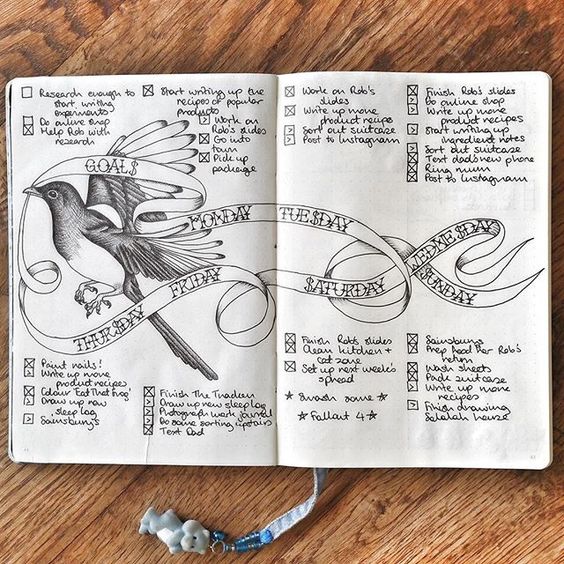 Research enough to
start writing
experiments
Do online shop
Help Rob with
research
Start writing up the
recipes of popular
products
Work on
Rob's slides
Go into
town
Pick up
package
Work on Rob's
slides
Write up more
product recipe
Sort out suitcase
Post to Instagram
Finish Rob's slides
Do online shop
Write up more
product recipes
Start writing up
ingredient notes
Sort out suitcase
Text dad's new phone
Ring mum
Post to Instagram
GOALS
MONDAY
TUESDAY
WEDNESDAY
THURSDAY
FRIDAY
SATURDAY
SUNDAY
Paint nails!
Write up more
product recipes
Colour 'Eat That Frog'
Draw up new
sleep log
Sainsbury's
Finish The
Draw up new sleep log
Photograph work journal
Do some sorting upstairs
Text Dad
Finish Rob's slides
Clean kitchen +
cat zone
Set up next week's
spread
some
Fallout 4
Sainsburys
Prep food for Rob's
return
Wash sheets
suitcase
Write up more
recipes
Finish drawing
house